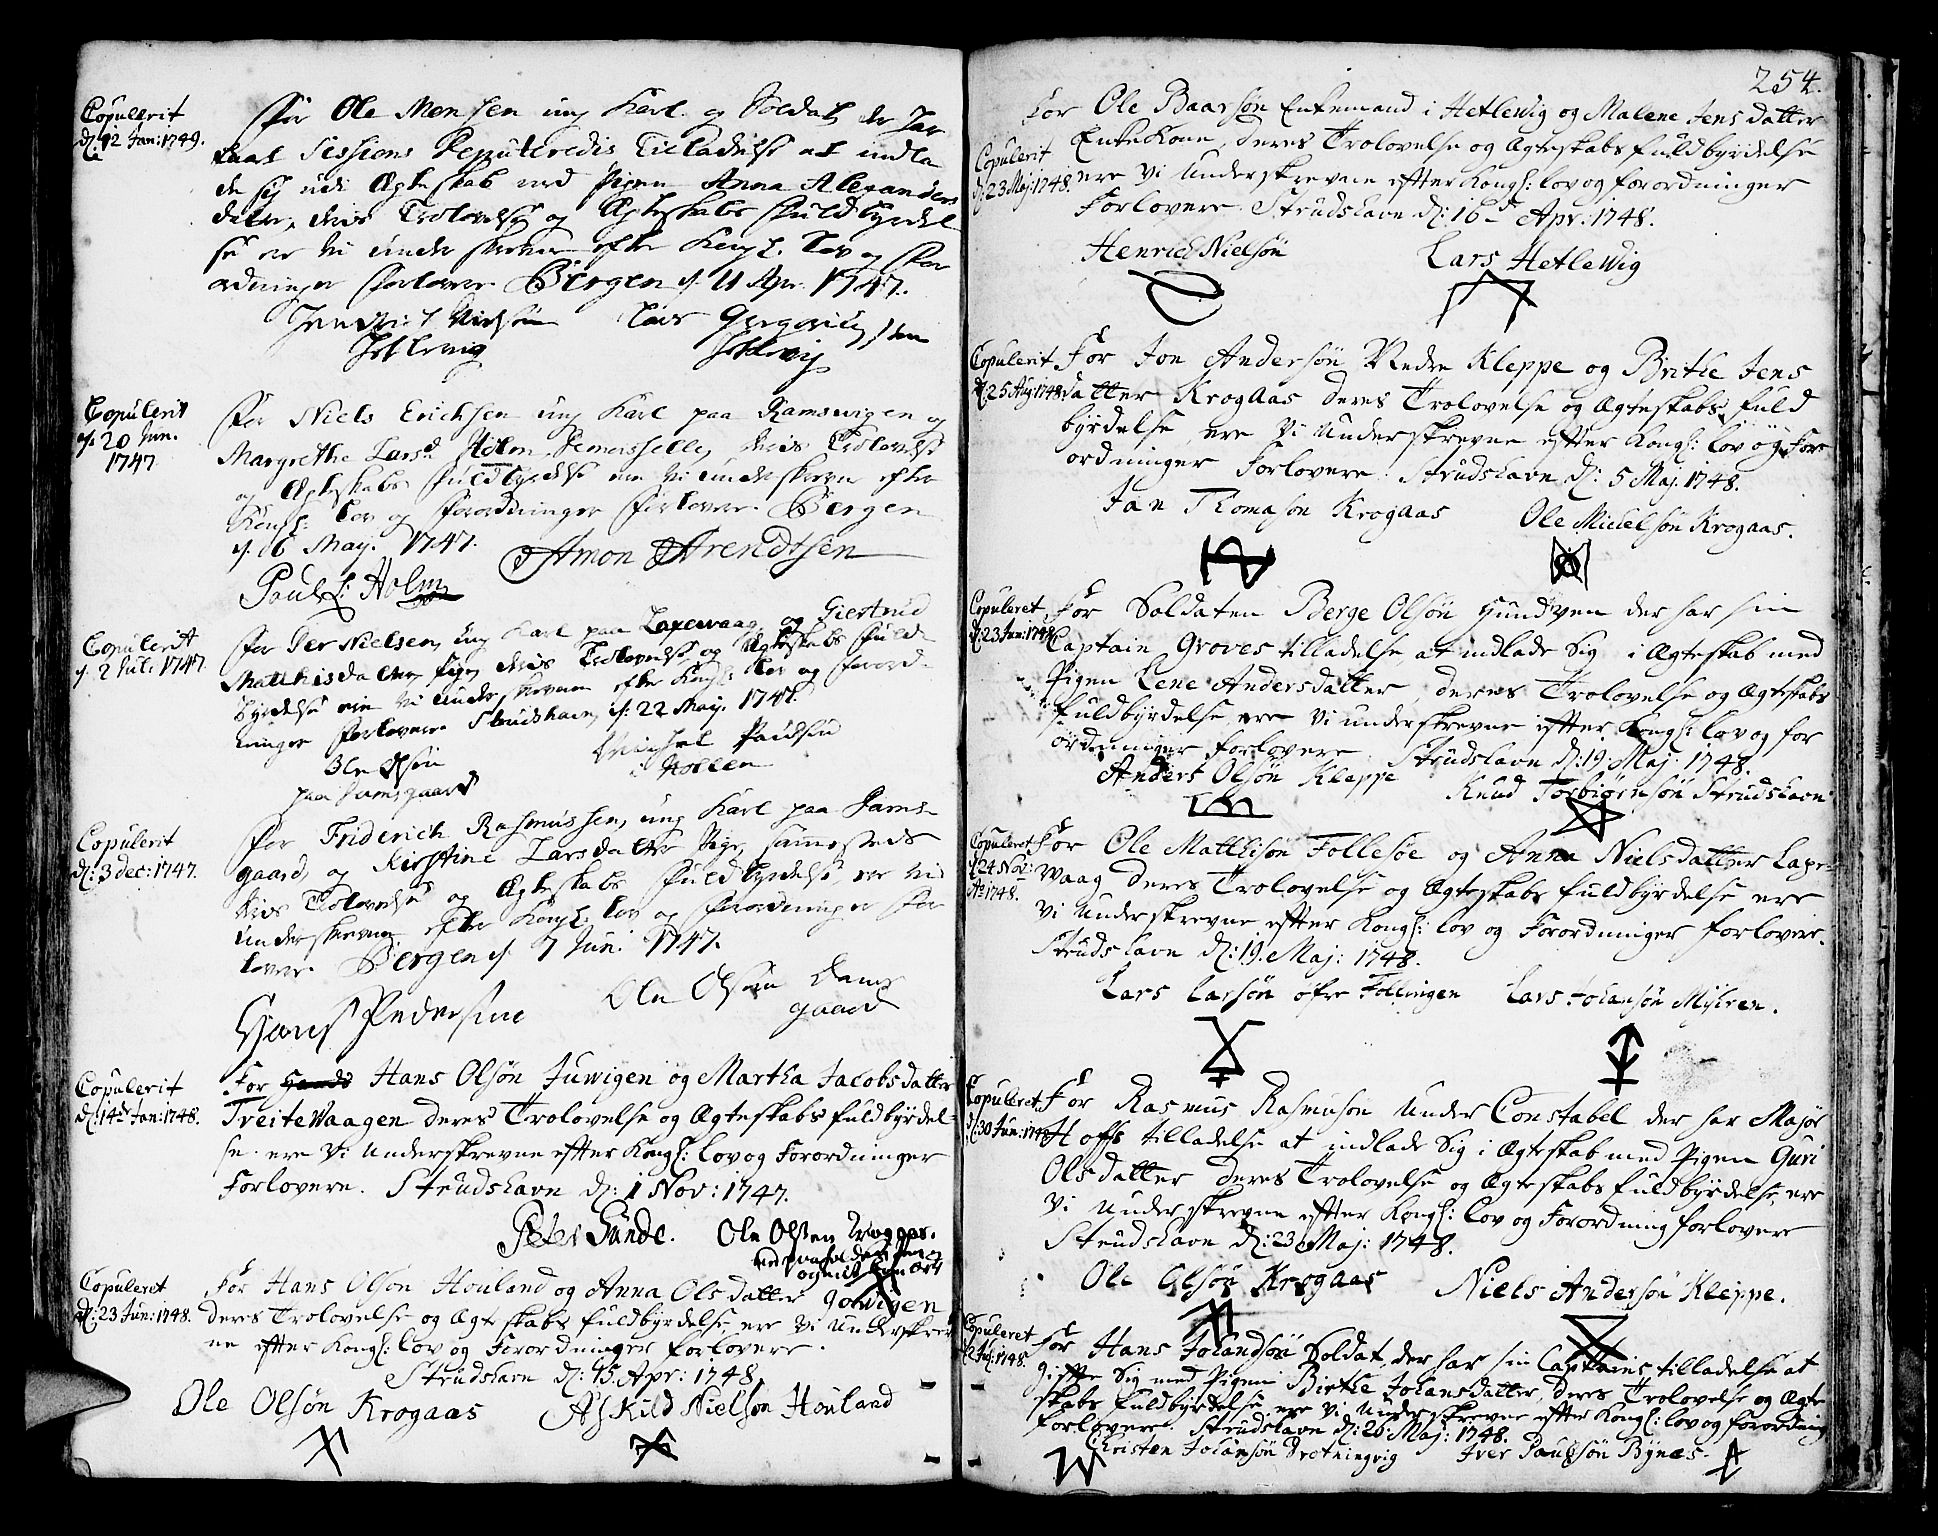 Copulerit
d. 12 Jan: 1749.
For Ole Monsen ung Karl og Soldat, der har
Sessions Deputeredis Tilladelse at indla
de sig udi Ægteskab med Pigen Anna Alexanders
datter, deris Trolovelse og Ægteskabs Fuldbyrdel
se ere Vi underskrevne efter Kongl. Lov og For
ordninger Forlovere Bergen d. 11 Apr. 1747.
Hendrich Nielsen Lars Gregorius sen
Hetlevig Hetlevig
Copulerit
d. 20 Jun.
1747
For Niels Erichsen ung Karl paa Ramsvigen og
Margrethe Larsd. Holm Demoiselle, deris Trolovelse
og Ægteskabs Fuldbyrdelse ere Vi underskrevne efter
Kongl: Lov og Forordninger Forlovere Bergen
d. 16 May. 1747.
Amon Arendtsen
Paul L: Holm
Copulerit
d. 2 Jul: 1747.
For Per Nielsen, ung Karl paa Laxevaag, og Giertrud
Matthisdatter Pige, deris Trolovelse og Ægteskabs Fuld-
byrdelse ere Vi underskrevne efter Kongl: Lov og Forord-
ninger Forlovere Strudshavn, d. 22 May. 1747.
Ole Olsøn Michel Paulsen
paa Damsgaard i Holmen
Copulerit
d: 3 Dec: 1747.
For Friderich Rasmussen, ung Karl paa Dams-
gaard, og Kirstine Larsdatter Pige, sammesteds
deris Trolovelse og Ægteskabs Fuldbyrdelse, ere Vi
underskrevne efter Kongl. Lov og Forordninger For
lovere Bergen d. 7 Jun. 1747.
Hans Pedersen Ole Olsen Dams
gaard
Copulerit
d: 14de Jan: 1748.
For Hands Hans Olsøn Juwigen og Martha Jacobsdatter
TreiteWaagen deres Trolovelse og Ægteskabs fuldbyrdel-
se ere Vi Underskrevne effter Kongl: Lov og Forordninger
Forlovere. Strudshavn d: 1 Nov: 1747.
Peter Sunde. Ole Olsen
Copuleret
d: 23 Jun: 1748.
For Hans Olsøn Houland og Anna Olsdatter Jowigen
deres Trolovelse og Ægteskabs fuldbyrdelse, ere Vi Underskrev
ne effter Kongl: Lov og Forordninger forlovere.
Strudshavn d: 15. Apr: 1748.
Ole Olsøn Krogaas Askild Nielsøn Houland
254.
Copulerit
d: 23 Maj: 1748.
For Ole Baarsøn Enkemand i Hetlewig og Malene Jens datter
Enkekone, deres Trolovelse og Ægteskabs fuldbyrdelse
ere Vi Underskrevne effter Kongl: Lov og forordninger
Forlovere Strudshavn d: 16de Apr: 1748.
Henrich Nielsøn Lars Hetlewig
Copulerit
d: 25 Aug: 1748.
For Jon Andersøn Nedre Kleppe og Brithe Jens
datter Krogaas deres Trolovelse og Ægteskabs fuld
byrdelse, ere Vi Underskrevne effter Kongl: Lov og For
ordninger Forlovere. Strudshavn d: 5 Maj. 1748.
Jan Thomasøn Krogaas Ole Michelsøn Krogaas.
Copuleret
d: 23 Jun: 1748.
For Soldaten Berge Olsøn Hundven der har sin
Captain Groves tilladelse, at indlade Sig i Ægteskab med
Pigen Lene Andersdatter, deres Trolovelse og Ægteskabs
fuldbyrdelse, ere Vi underskrevne effter Kongl: Lov og for
ordninger forlovere. Strudshavn d: 19. Maj: 1748.
Anders Olsøn Kleppe Knud Torbiørnsøn Strudshavn
Copuleret
d: 24 Nov:
Ao 1748.
For Ole Matthisøn Follesøe og Anna Nielsdatter Laxe-
waag deres Trolovelse og Ægteskabs fuldbyrdelse ere
Vi Underskrevne effter Kongl: Lov og Forordninger forlovere.
Strudshavn d: 19. Maj: 1748.
Lars Larsøn øfre Follingen Lars Johansøn Myhren.
Copuleret
d: 30 Jun: 1748
For Rasmus Rasmusøn Under Constabel der har Major
Hoffs tilladelse at indlade Sig i Ægteskab med Pigen Guri
Olsdatter deres Trolovelse og Ægteskabs fuldbyrdelse, ere
Vi Underskrevne effter Kongl: Lov og Forordning forlovere
Strudshavn d: 23 Maj: 1748.
Ole Olsøn Krogaas Niels Andersøn Kleppe.
Copuleret
d: 2 Jul: 1748.
For Hans Johandsøn Soldat, der har sin Captains tilladelse at
gifte Sig med Pigen Birthe Johansdatter, deres Trolovelse og Ægte
skabs fuldbyrdelse ere Vi Underskrevne effter Kongl: Lov og forordning
forlovere. Strudshavn d: 26 Maj: 1748.
Christen Johansøn Drotningvig Iver Paulsøn Bynes